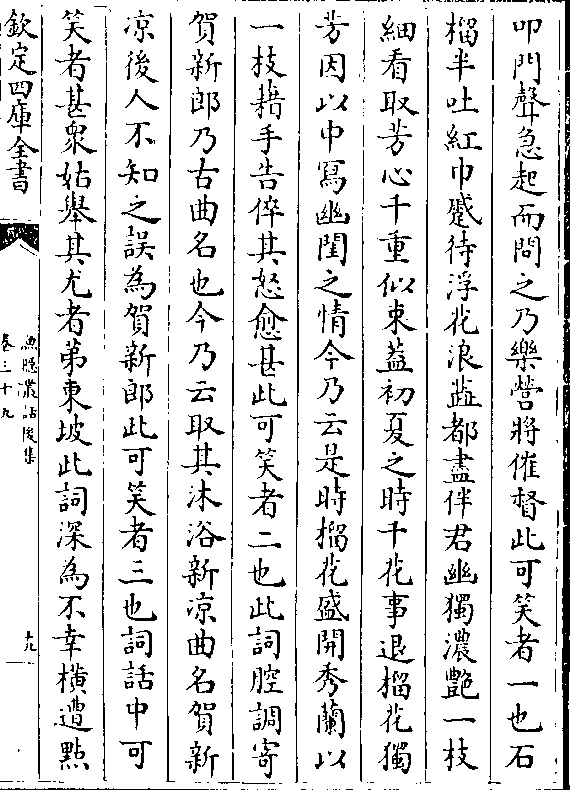 叩門聲急起而問之乃樂營將催督此可笑者一也石
榴半吐紅巾蹙待浮花浪蘂都盡伴君幽獨濃艷一枝
細看取芳心千重似束蓋初夏之時千花事退榴花獨
芳因以中寫幽閨之情今乃云是時榴花盛開秀蘭以
一枝藉手告倅其怒愈甚此可笑者二也此詞腔調寄
賀新郎乃古曲名也今乃云取其沐浴新凉曲名賀新
凉後人不知之誤為賀新郎此可笑者三也詞話中可
笑者甚衆姑舉其尤者苐東坡此詞深為不幸横遭㸃
欽定四庫全書
漁隱叢話後集
卷三十九
十九